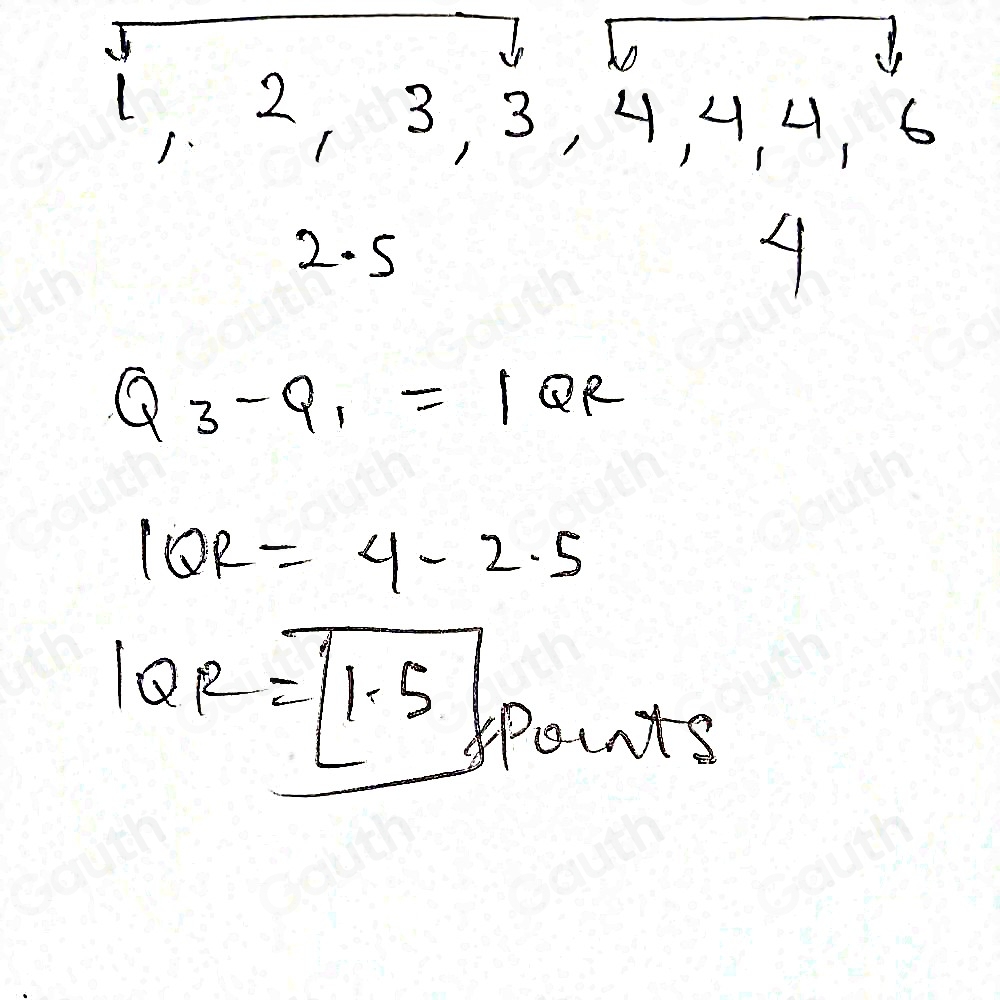 1, 2, 3, 3, 4, 4, 4, 6
2.5 4
Q3 - Q1 = IQR
IQR = 4 - 2.5
IQR = 1.5 points